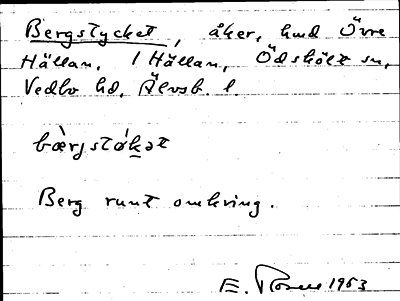 Bergstycket, åker, hmd Övre
Hällan, 1 Hällan, Ödskölt sn,
Vedbo hd, Älvsb. l.
bærjstókət
Berg runt omkring.
E. 1963